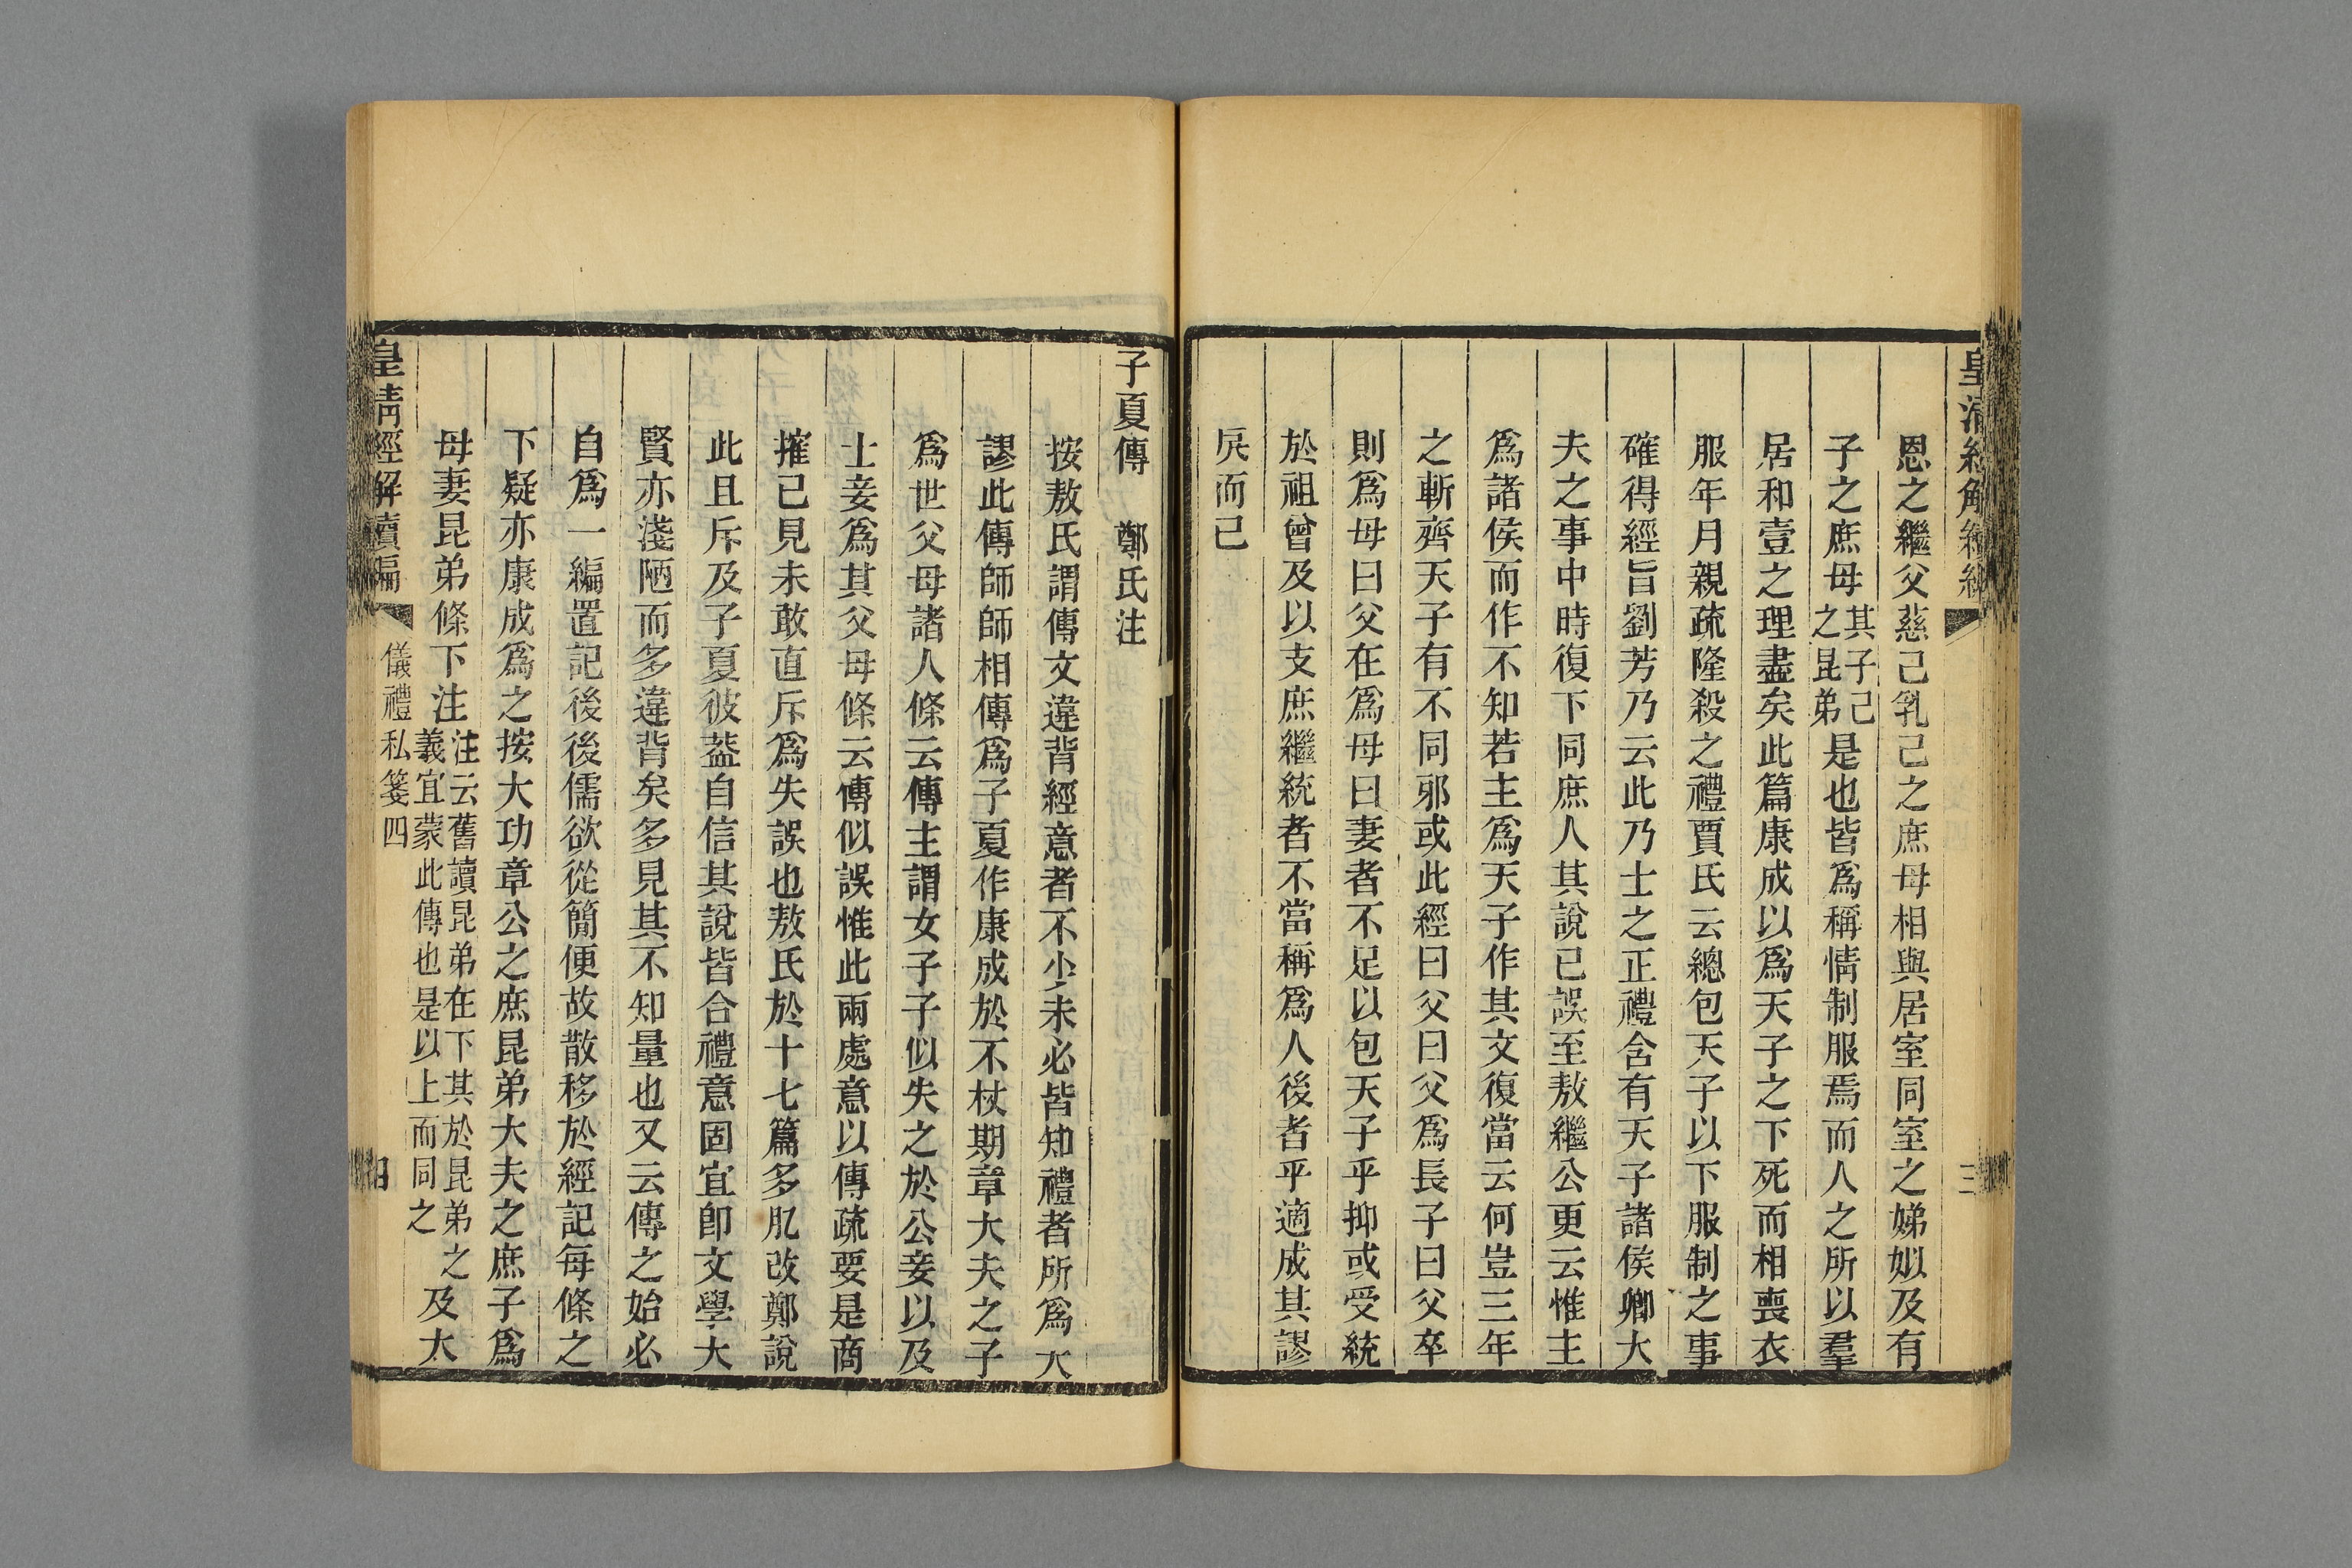 皇清經解續編
三
恩之繼父慈己乳己之庶母相與居室同室之娣姒及有
子之庶母其子己之昆弟是也皆爲稱情制服焉而人之所以羣
居和壹之理盡矣此篇康成以爲天子之下死而相喪衣
服年月親疏隆殺之禮賈氏云總包天子以下服制之事
確得經旨劉芳乃云此乃士之正禮含有天子諸侯卿大
夫之事中時復下同庶人其說已誤至敖繼公更云惟主
爲諸侯而作不知若主爲天子作其文復當云何豈三年
之斬齊天子有不同邪或此經曰父曰父爲長子曰父卒
則爲母曰父在爲母曰妻者不足以包天子乎抑或受統
於祖曾及以支庶繼統者不當稱爲人後者乎適成其謬
戾而已
子夏傳 鄭氏注
按敖氏謂傳文違背經意者不少未必皆知禮者所爲大
謬此傳師師相傳爲子夏作康成於不杖期章大夫之子
爲世父母諸人條云傳主謂女子子似失之於公妾以及
士妾爲其父母條云傳似誤惟此兩處意以傳疏要是商
搉已見未敢直斥爲失誤也敖氏於十七篇多肊改鄭說
此且斥及子夏彼葢自信其說皆合禮意固宜卽文學大
賢亦淺陋而多違背矣多見其不知量也又云傳之始必
自爲一編置記後後儒欲從簡便故散移於經記每條之
下疑亦康成爲之按大功章公之庶昆弟大夫之庶子爲
母妻昆弟條下注注云舊讀昆弟在下其於昆弟之義宜蒙此傳也是以上而同之及大
皇清經解續編
儀禮私箋四
四